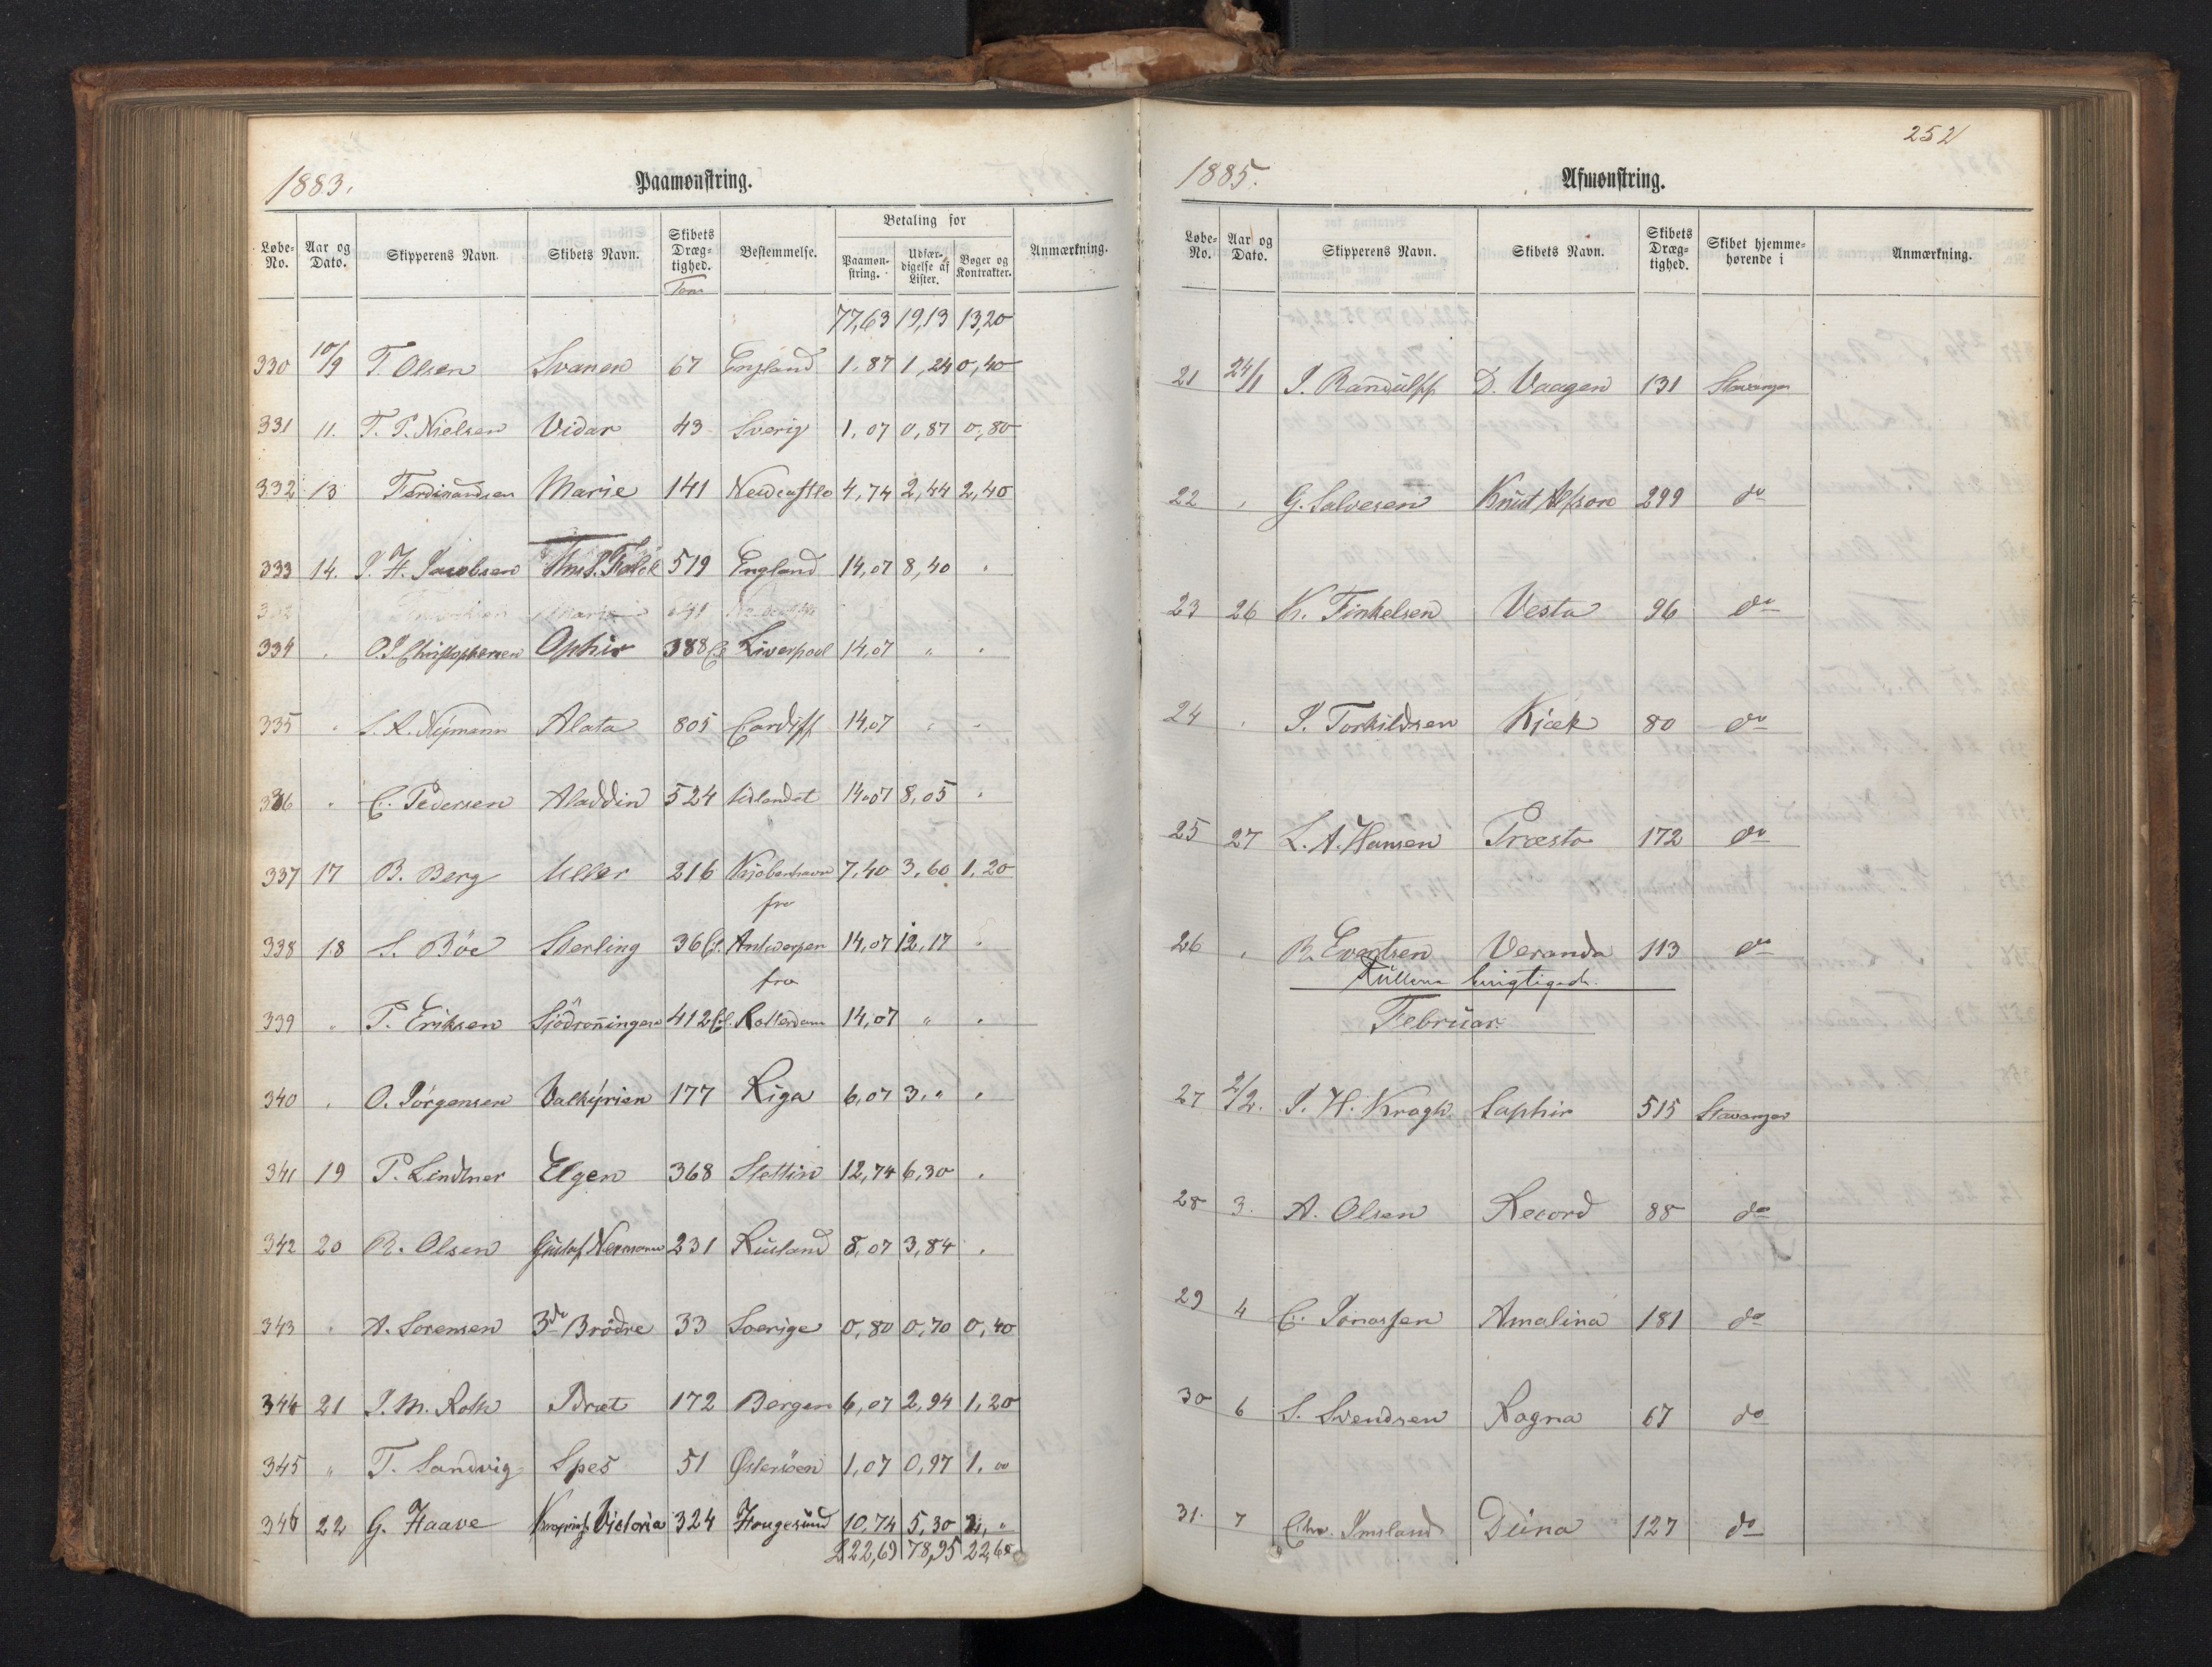 1883.
Paamønstring.
Løbe-No. Aar og Dato. Skipperens Navn. Skibets Navn. Skibets Dræg-tighed. Bestemmelse. Betaling for Paamøn-string. Udfær-digelse af Lister. Bøger og Kontrakter. Anmærkning.
Tons
77,63 19,13 13,20
330 10/9 T. Olsen Svanen 67 England 1,87 1,24 0,40
331 11. T. P. Nielsen Vidar 43 Sverig 1,07 0,87 0,80
332 13 Ferdinandsen Marie 141 Newcastle 4,74 2,44 2,40
333 14. J. H. Jacobsen Thos. S. Falck 519 England 14,07 8,40 "
334 " O. J. Christophersen Ophir 388 Cl Liverpool 14,07 " "
335 " S. A. Nÿmann Alata 805 Cardiff 14,07 " "
336 " C. Pedersen Aladdin 524 Udlandet 14,07 8,05 "
337 17 B. Berg Uller 216 Kjøbenhavn 7,40 3,60 1,20
fra
338 18 S. Böe Sterling 36 Cl. Antwerpen 14,07 12,17 "
fra
339 " P. Eriksen Sjödronningen 412 Cl. Rotterdam 14,07 " "
340 " O. Jörgensen Valkÿrien 177 Riga 6,07 3," "
341 19 P. Lindtner Elgen 368 Stettin 12,74 6,30 "
342 20 R. Olsen Gustaf Nermann 231 Rusland 8,07 3,84 "
343 " A. Sorensen 3de Brödre 33 Sverige 0,80 0,70 0,40
344 21 J. M. Roth Idræt 172 Bergen 6,07 2,94 1,20
345 " T. Sandvig Spes 51 Østersöen 1,07 0,97 1,00
346 22 G. Haave Kronprinds. Victoria 324 Haugesund 10,74 5,30 2,"
222,69 78,95 22,60
252
1885.
Afmønstring.
Løbe-No. Aar og Dato. Skipperens Navn. Skibets Navn. Skibets Dræg-tighed. Skibet hjemme-hørende i Anmærkning.
21 24/1 J. Randulff D. Vaagen 131 Stavanger
22 " G. Salvesen Knut Alfson 299 do
23 26 K. Tinkelsen Vesta 96 do
24 " J. Torkildsen Kjæk 80 do
25 27 L. A. Hansen Præsto 172 do
26 " R. Evertsen Veranda 113 do
Rullerne
Februar
27 2/2. J. H. Kragh Saphir 515 Stavanger
28 3. A. Olsen Record 88 do
29 4 C. Jonassen Amalina 181 do
30 6 S. Svendsen Ragna 67 do
31. 7 Chr. Imsland Deina 127 do